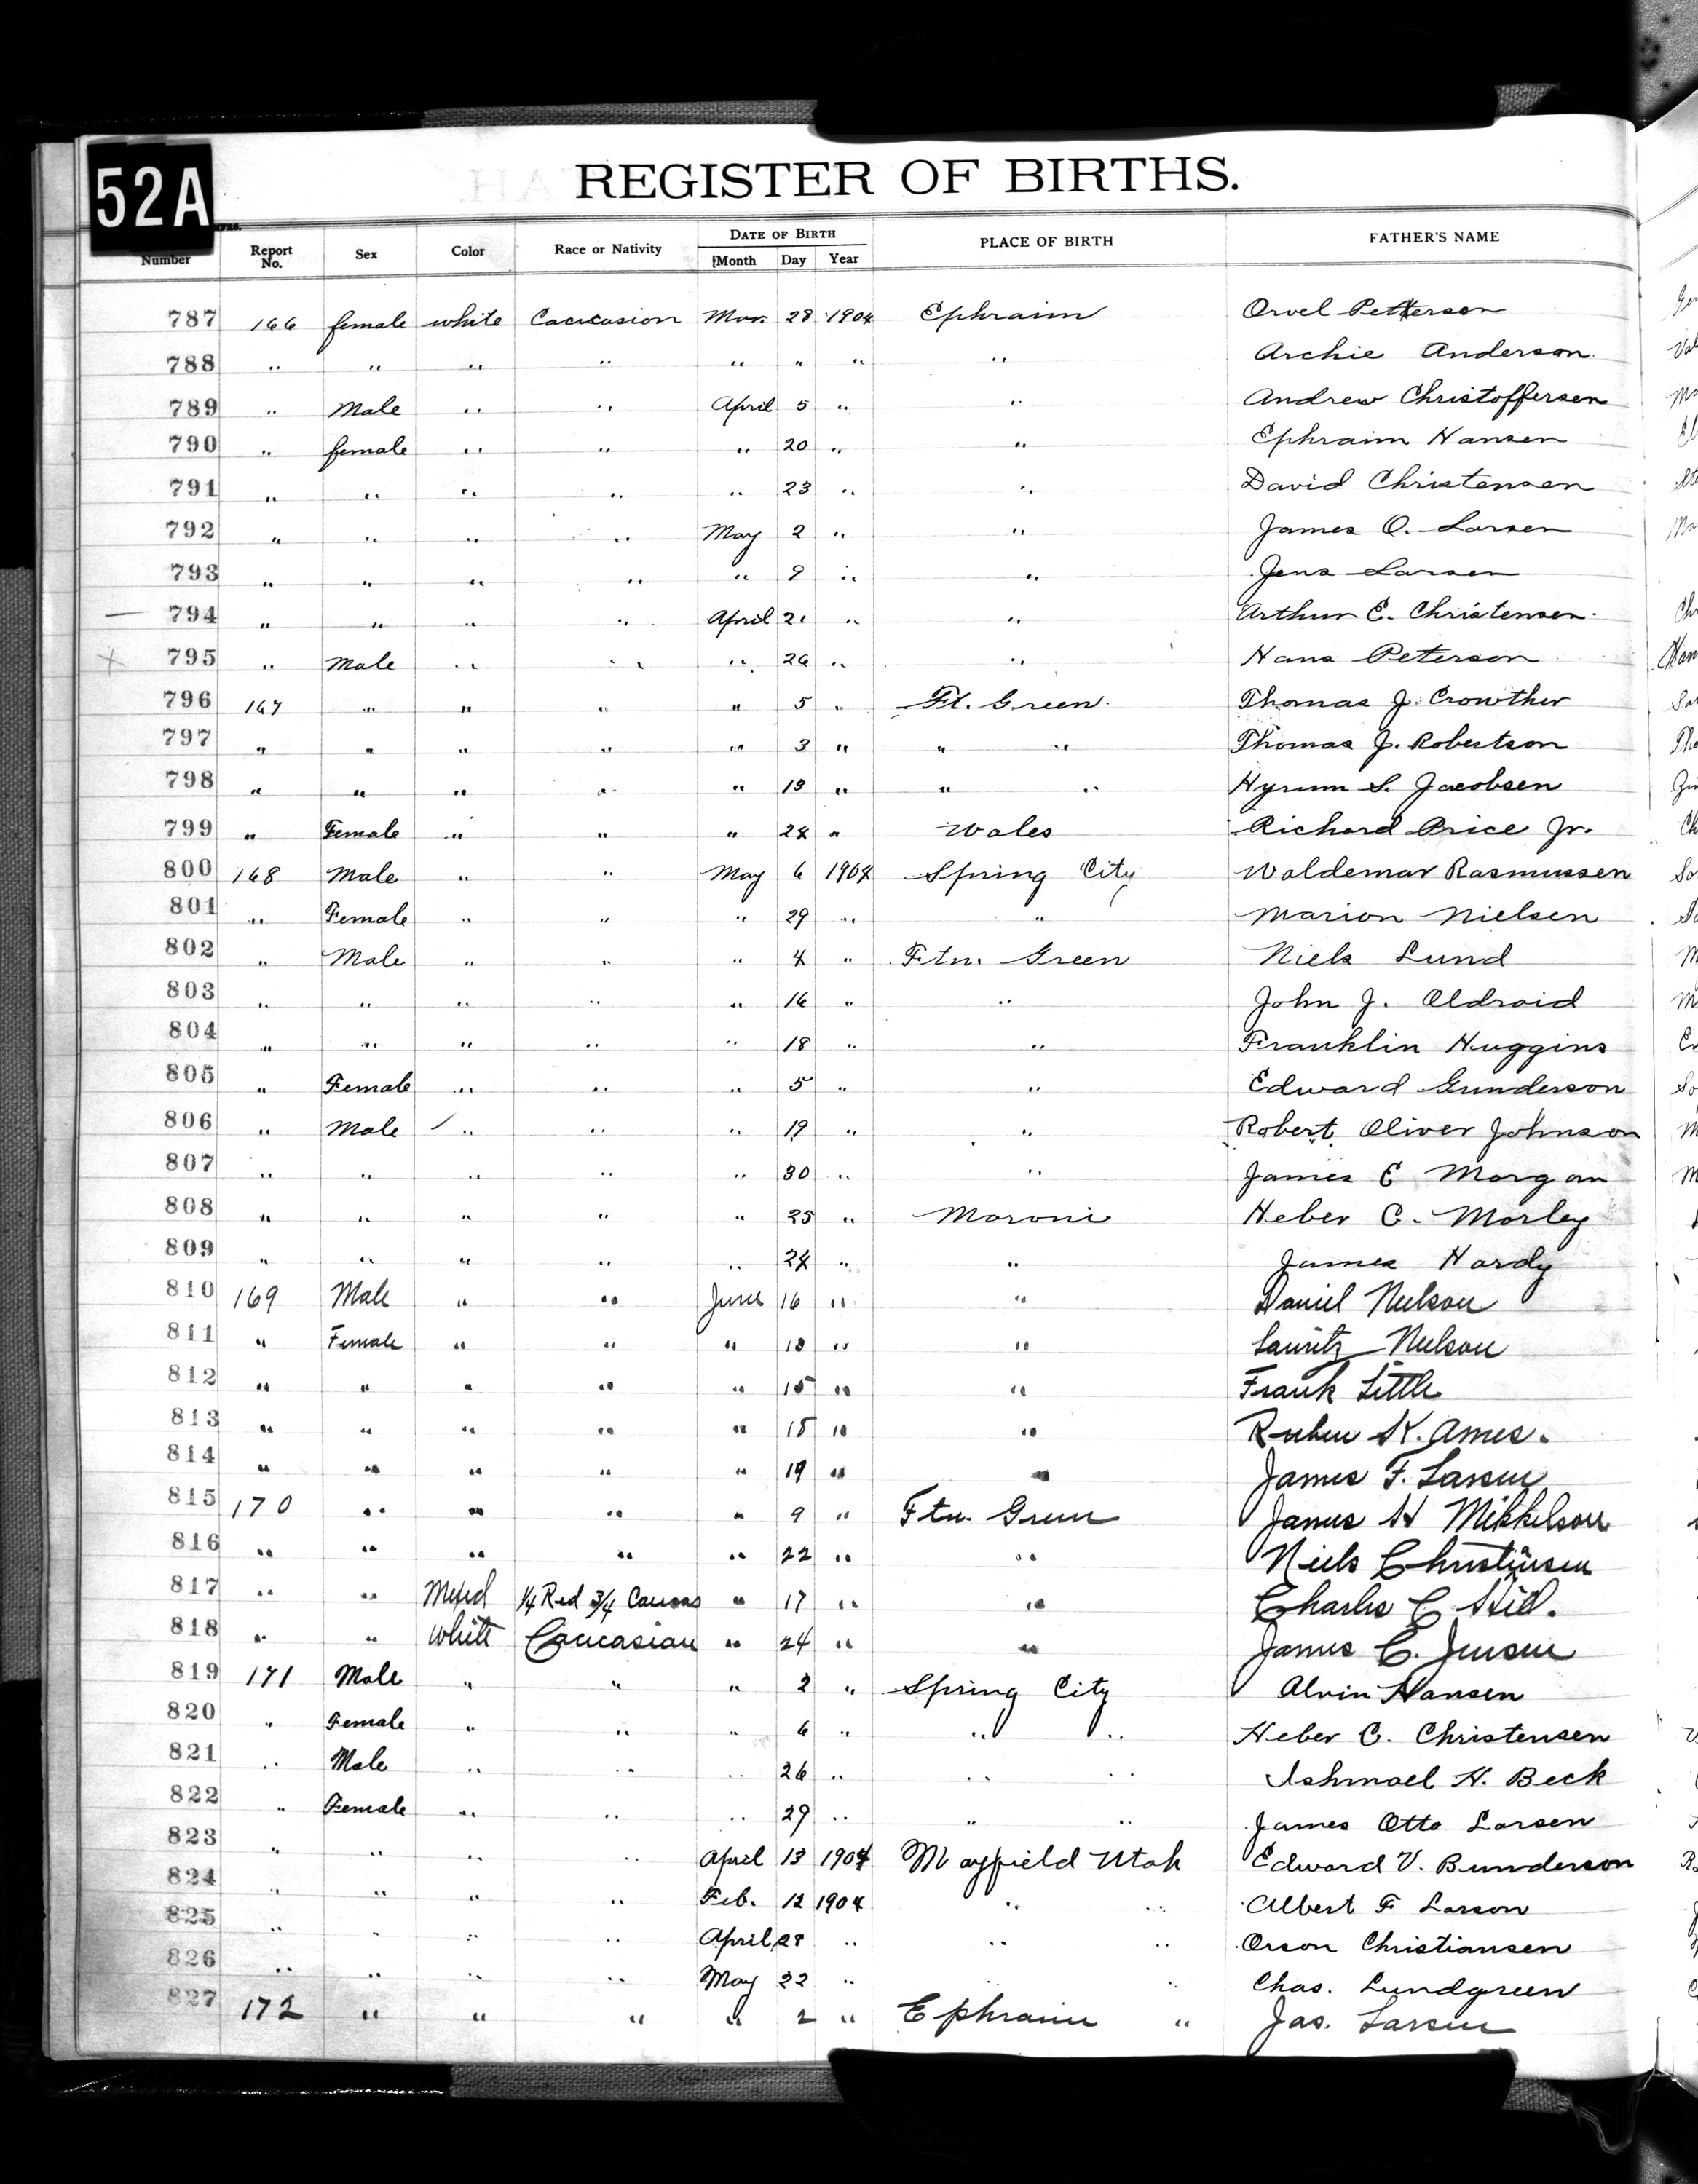 52A
REGISTER OF BIRTHS.
Number Report No. Sex Color Race or Nativity DATE OF BIRTH Month Day Year PLACE OF BIRTH FATHER'S NAME
787 166 female white Caucasion Mar. 28 1904 Ephraim Orvel Petterson
788 " " " " " " " " Archie Anderson.
789 " Male " " April 5 " " Andrew Christoffersen
790 " female " " " 20 " " Ephraim Hansen
791 " " " " " 23 " " David Christensen
792 " " " " May 2 " " James O. Larsen
793 " " " " " 9 " " Jens Larsen
794 " " " " April 21 " " Arthur E. Christensen.
795 " Male " " " 26 " " Hans Peterson
796 167 " " " " 5 " Ft. Green. Thomas J. Crowther
797 " " " " " 3 " " " Thomas J. Robertson
798 " " " " " 13 " " " Hyrum S. Jacobsen
799 " Female " " " 24 " Wales Richard Price Jr.
800 168 Male " " May 6 1904 Spring City Waldemar Rasmussen
801 " Female " " " 29 " " Marion Nielsen
802 " Male " " " 4 " Ftn. Green Niels Lund
803 " " " " " 16 " " John J. Oldroid
804 " " " " " 18 " " Franklin Huggins
805 " Female " " " 5 " " Edward Gunderson
806 " Male " " " 19 " " Robert Oliver Johnson
807 " " " " " 30 " " James E Morgan
808 " " " " " 25 " Moroni Heber C. Morley
809 " " " " " 24 " " James Hardy
810 169 Male " " June 16 " " Daniel Neelson
811 " Female " " " 13 " " Lauritz Neelson
812 " " " " " 15 " " Frank Little
813 " " " " " 15 " " Ruben K. Ames.
814 " " " " " 19 " " James F. Larsen
815 170 " " " " 9 " Ftn. Green James H Mikkelson
816 " " " " " 22 " " Niels Christensen
817 " " Mixed 1/4 Red 3/4 Caucas " 17 " " Charles C
818 " " White Caucasian " 24 " " James C. Jensen
819 171 Male " " " 2 " Spring City Alvin Hansen
820 " Female " " " 6 " " " Heber C. Christensen
821 " Male " " " 26 " " " Ishmael H. Beck
822 " Female " " " 29 " " " James Otto Larsen
823 " " " " April 13 1904 Mayfield Utah Edward V. Bunderson
824 " " " " Feb. 12 1904 " " Albert F Larson
825 " " " " April 28 " " " Orson Christiansen
826 " " " " May 22 " " " Chas. Lundgreen
827 172 " " " " 2 " Ephraim " Jas. Larsen